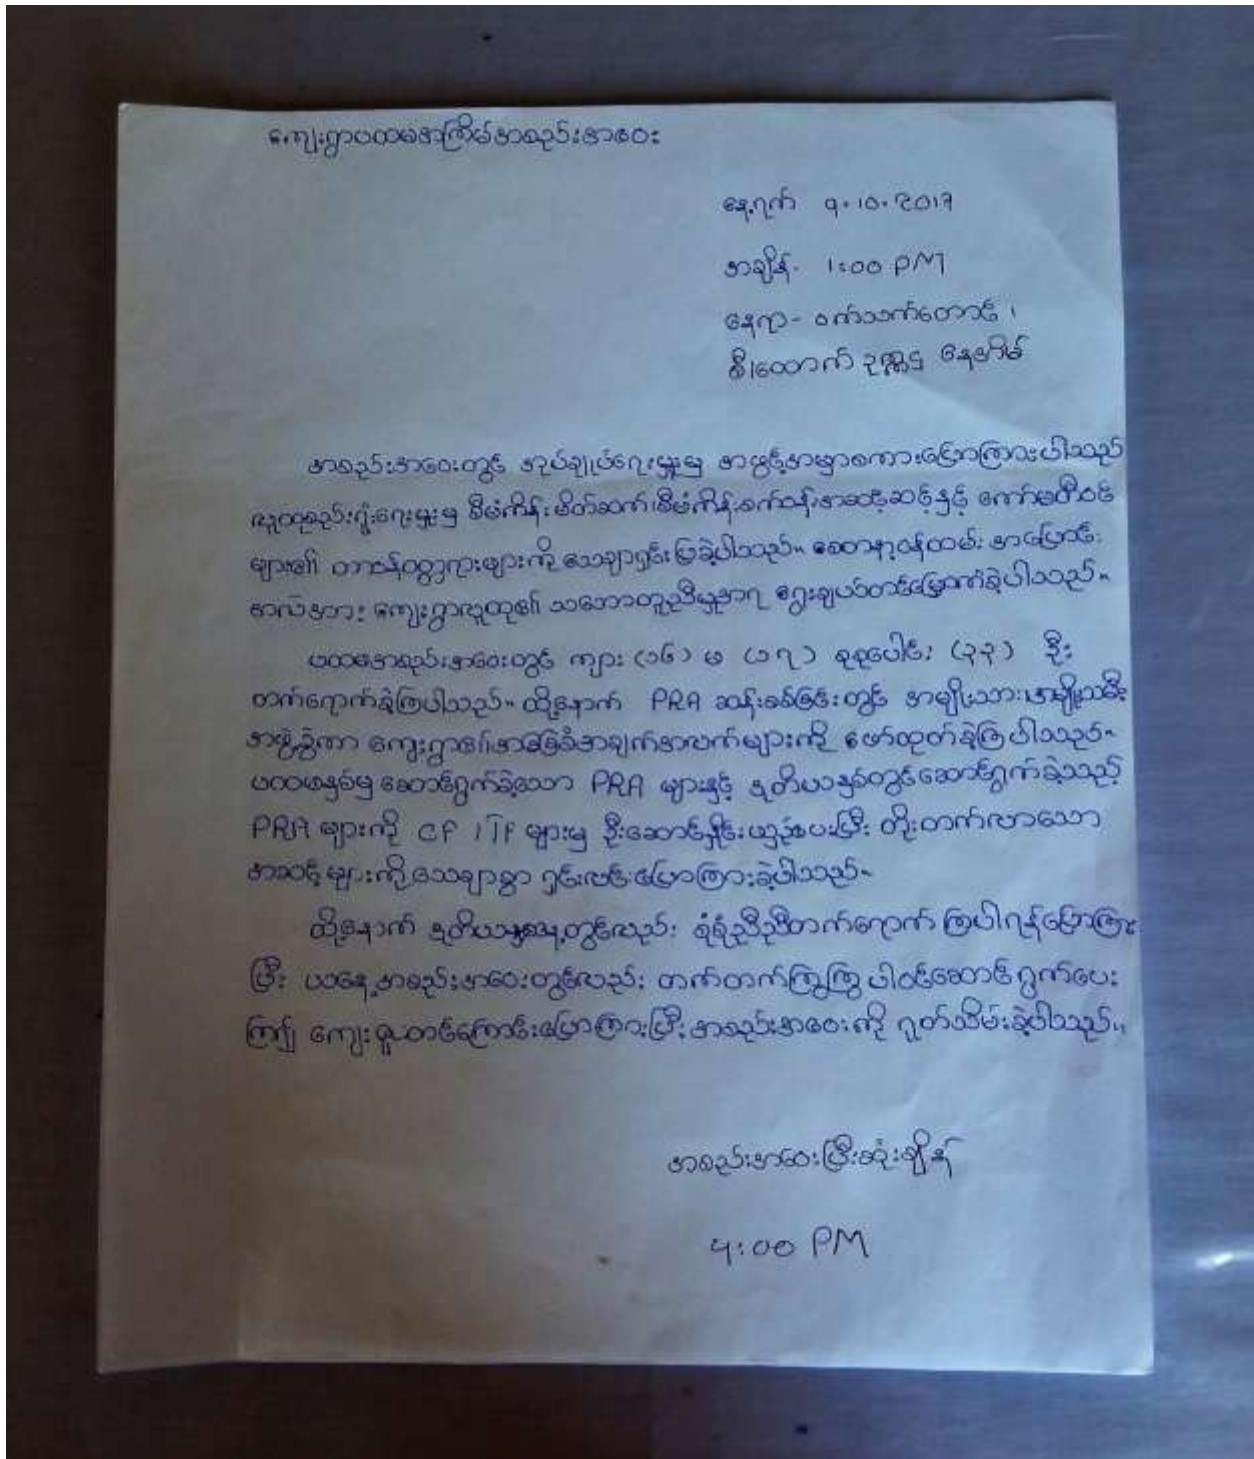 ကျေးရွာပထမအကြိမ်အစည်းအဝေး
နေ့ရက် 9.10.2017
အချိန်- 1:00 PM
နေရာ- ဝက်သက်တောင်၊
စီ၊ထောက် ဥက္ကဋ္ဌ နေအိမ်
အစည်းအဝေးတွင် အုပ်ချုပ်ရေးမှူးမှ အဖွင့်အမှာစကားပြောကြားပါသည်
လူထုစည်းရုံးရေးမှူးမှ စီမံကိန်း မိတ်ဆက်၊စီမံကိန်းစက်ဝန်းအဆင့်ဆင့်နှင့် ကော်မတီဝင်
များ၏ တာဝန်ဝတ္တရားများကို သေချာရှင်းပြခဲ့ပါသည်။ စေတနာ့ဝန်ထမ်း အပြောင်း
အလဲအား ကျေးရွာလူထု၏ သဘောတူညီမှုအရ ရွေးချယ်တင်မြှောက်ခဲ့ပါသည်။
ပထမအစည်းအဝေးတွင် ကျား (၁၆) မ (၁၇) စုစုပေါင်း (၃၃) ဦး
တက်ရောက်ခဲ့ကြပါသည်။ ထို့နောက် PRA ဆန်းစစ်ခြင်းတွင် အမျိုးသား၊အမျိုးသမီး
အဖွဲ့ခွဲကာ ကျေးရွာ၏အခြေခံအချက်အလက်များကို ဖော်ထုတ်ခဲ့ကြပါသည်။
ပထမနှစ်မှ ဆောင်ရွက်ခဲ့သော PRA များနှင့် ဒုတိယနှစ်တွင်ဆောင်ရွက်ခဲ့သည့်
PRA များကို CF ၊TF များမှ ဦးဆောင်နှိုင်းယှဉ်ပေးပြီး တိုးတက်လာသော
အဆင့်များကို သေချာစွာ ရှင်းလင်းပြောကြားခဲ့ပါသည်။
ထို့နောက် ဒုတိယနေ့တွင်လည်း စုံစုံညီညီတက်ရောက် ကြပါရန်ပြောကြား
ပြီး ယနေ့အစည်းအဝေးတွင်လည်း တက်တက်ကြွကြွ ပါဝင်ဆောင်ရွက်ပေး
ကြ၍ ကျေးဇူးတင်ကြောင်းပြောကြားပြီး အစည်းအဝေးကို ရုတ်သိမ်းခဲ့ပါသည်။
အစည်းအဝေးပြီးဆုံးချိန်
4:00 PM